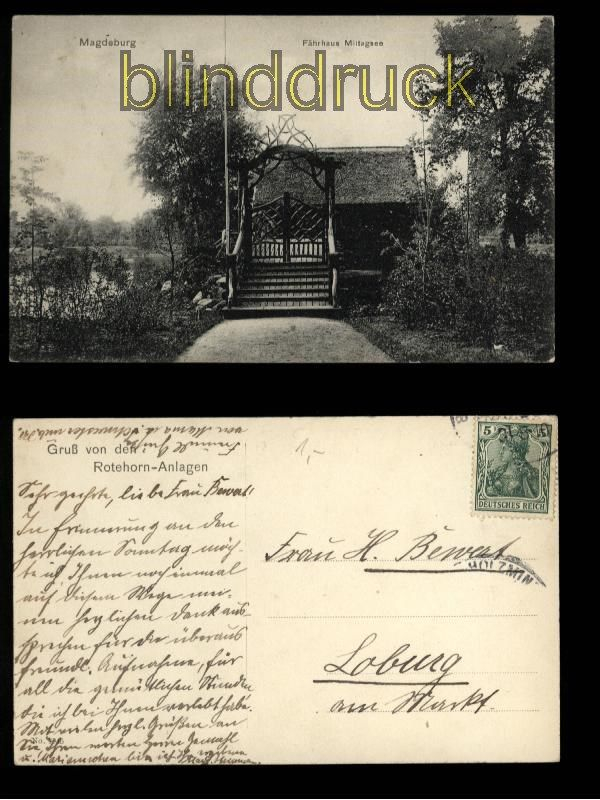 Magdeburg
Fährhaus Mittagsee
blinddruck
von Mama u. Schwester
Gruß von den
Rotehorn-Anlagen
1,-
5
5
DEUTSCHES REICH
HOLZMIN
Sehr geehrte, liebe Frau Bewert!
In Erinnerung an den
herrlichen Sonntag möch-
te ich Ihnen noch einmal
auf diesem Wege mei-
nen herzlichen Dank aus-
sprechen für die überaus
freundl. Aufnahme, für
all die gemütlichen Stunden
die ich bei Ihnen verlebt habe.
Mit vielen herzl. Grüßen an
Sie Ihren werten Herrn Gemahl
u. Mariannchen bin ich Ihre
Frau H. Bewert
Loburg
am Markt.